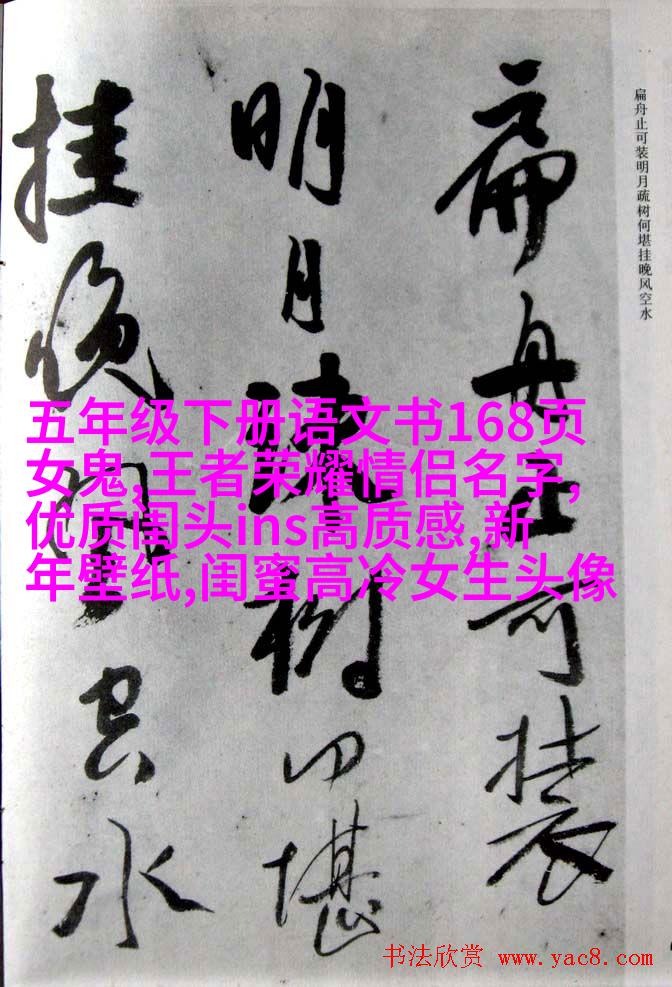 扁舟止可装
明月疏树何堪
挂晚风空水
扁舟止可装明月疏树何堪挂晚风空水
五年级下册语文书168页
女鬼,王者荣耀情侣名字,
优质闺头ins高质感,新
年壁纸,闺蜜高冷女生头像
书法欣赏 www.yac8.com